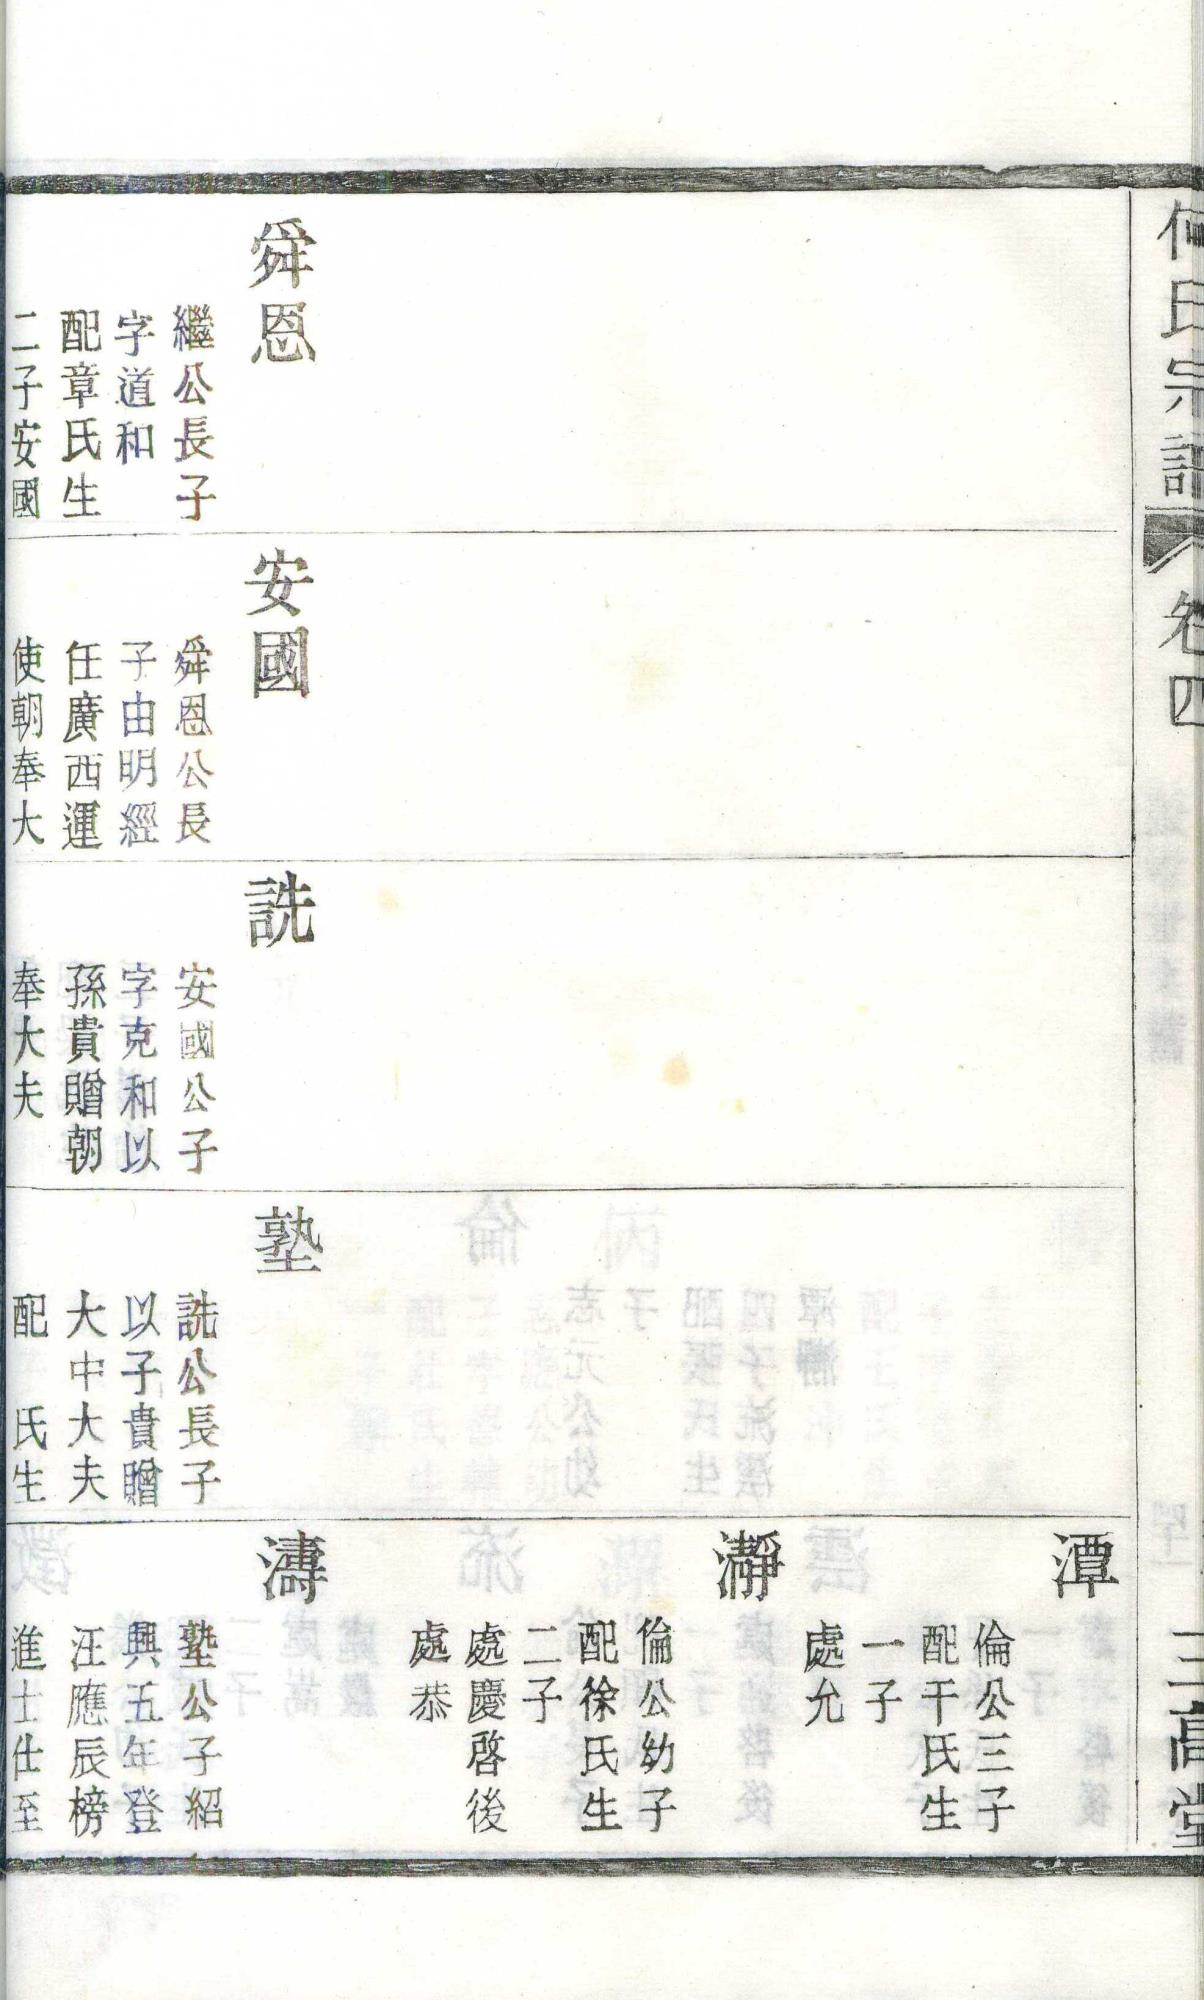 何氏宗譜
卷四
三高堂
舜恩
繼公長子
字道和
配章氏生
二子安國
安國
舜恩公長
子由明經
任廣西運
使朝奉大
詵
安國公子
字克和以
孫貴贈朝
奉大夫
塾
詵公長子
以子貴贈
大中大夫
配　氏生
潭
倫公三子
配干氏生
一子
處允
瀞
倫公幼子
配徐氏生
二子
處慶啓後
處恭
濤
塾公子紹
興五年登
汪應辰榜
進士仕至